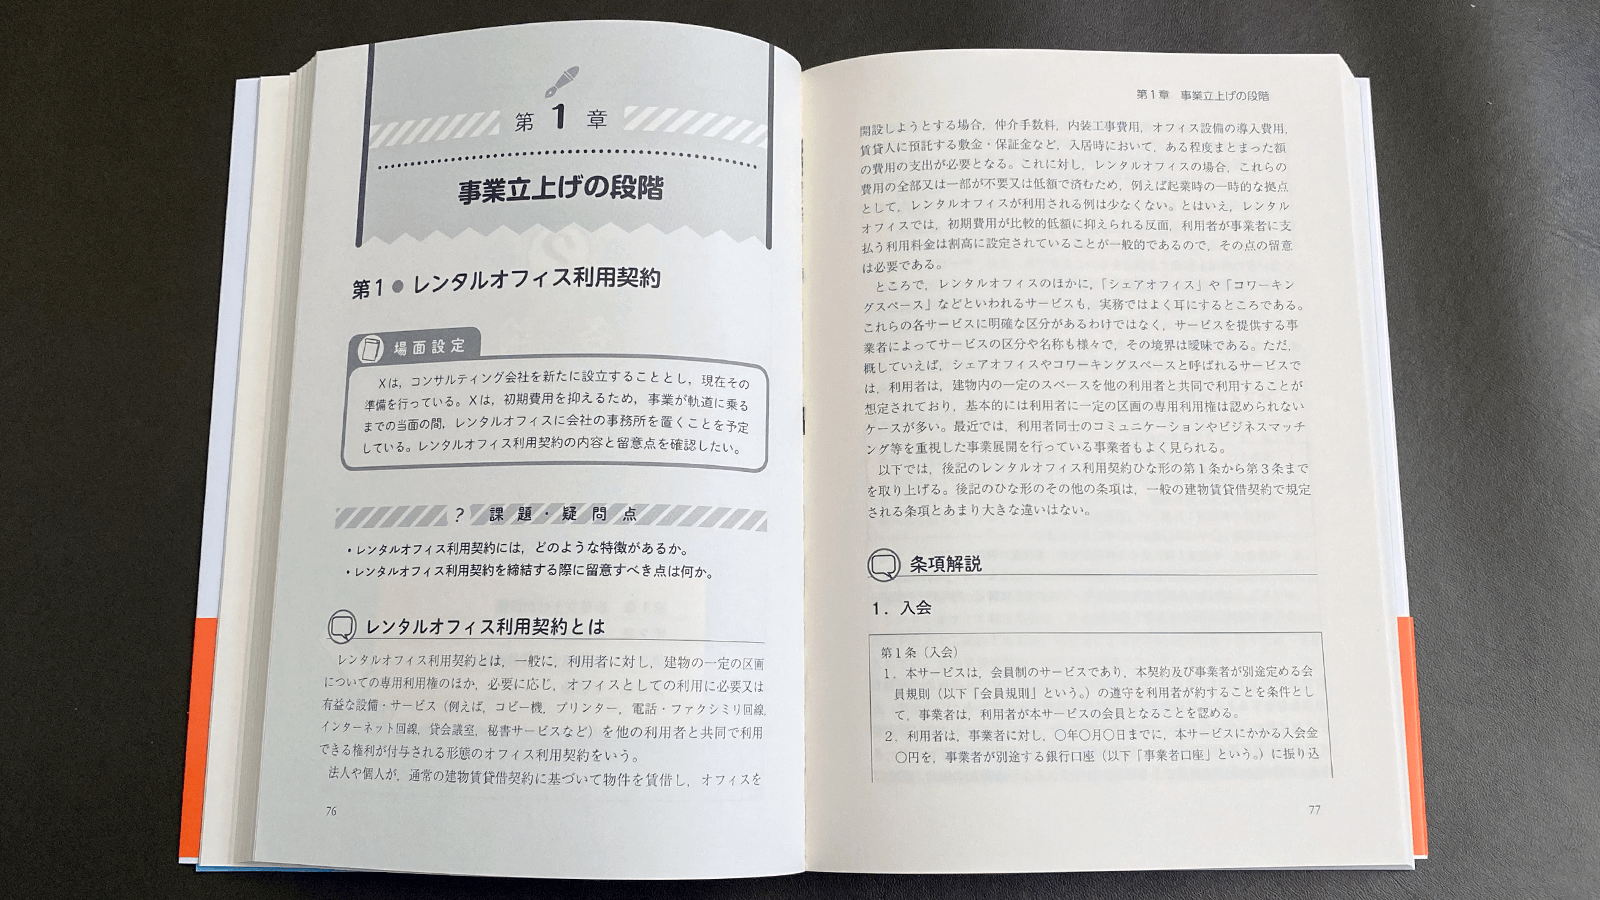 第1章
事業立上げの段階
第1●レンタルオフィス利用契約
場面設定
Xは，コンサルティング会社を新たに設立することとし，現在その
準備を行っている。Xは，初期費用を抑えるため，事業が軌道に乗る
までの当面の間，レンタルオフィスに会社の事務所を置くことを予定
している。レンタルオフィス利用契約の内容と留意点を確認したい。
? 課題・疑問点
・レンタルオフィス利用契約には，どのような特徴があるか。
・レンタルオフィス利用契約を締結する際に留意すべき点は何か。
レンタルオフィス利用契約とは
レンタルオフィス利用契約とは，一般に，利用者に対し，建物の一定の区画
についての専用利用権のほか，必要に応じ，オフィスとしての利用に必要又は
有益な設備・サービス（例えば，コピー機，プリンター，電話・ファクシミリ回線，
インターネット回線，貸会議室，秘書サービスなど）を他の利用者と共同で利用
できる権利が付与される形態のオフィス利用契約をいう。
法人や個人が，通常の建物賃貸借契約に基づいて物件を賃借し，オフィスを
76
第1章　事業立上げの段階
開設しようとする場合，仲介手数料，内装工事費用，オフィス設備の導入費用，
賃貸人に預託する敷金・保証金など，入居時において，ある程度まとまった額
の費用の支出が必要となる。これに対し，レンタルオフィスの場合，これらの
費用の全部又は一部が不要又は低額で済むため，例えば起業時の一時的な拠点
として，レンタルオフィスが利用される例は少なくない。とはいえ，レンタル
オフィスでは，初期費用が比較的低額に抑えられる反面，利用者が事業者に支
払う利用料金は割高に設定されていることが一般的であるので，その点の留意
は必要である。
ところで，レンタルオフィスのほかに，「シェアオフィス」や「コワーキン
グスペース」などといわれるサービスも，実務ではよく耳にするところである。
これらの各サービスに明確な区分があるわけではなく，サービスを提供する事
業者によってサービスの区分や名称も様々で，その境界は曖昧である。ただ，
概していえば，シェアオフィスやコワーキングスペースと呼ばれるサービスで
は，利用者は，建物内の一定のスペースを他の利用者と共同で利用することが
想定されており，基本的には利用者に一定の区画の専用利用権は認められない
ケースが多い。最近では，利用者同士のコミュニケーションやビジネスマッチ
ング等を重視した事業展開を行っている事業者もよく見られる。
以下では，後記のレンタルオフィス利用契約ひな形の第1条から第3条まで
を取り上げる。後記のひな形のその他の条項は，一般の建物賃貸借契約で規定
される条項とあまり大きな違いはない。
条項解説
1．入会
第1条（入会）
1．本サービスは，会員制のサービスであり，本契約及び事業者が別途定める会
員規則（以下「会員規則」という。）の遵守を利用者が約することを条件とし
て，事業者は，利用者が本サービスの会員となることを認める。
2．利用者は，事業者に対し，〇年〇月〇日までに，本サービスにかかる入会金
〇円を，事業者が別途する銀行口座（以下「事業者口座」という。）に振り込
77